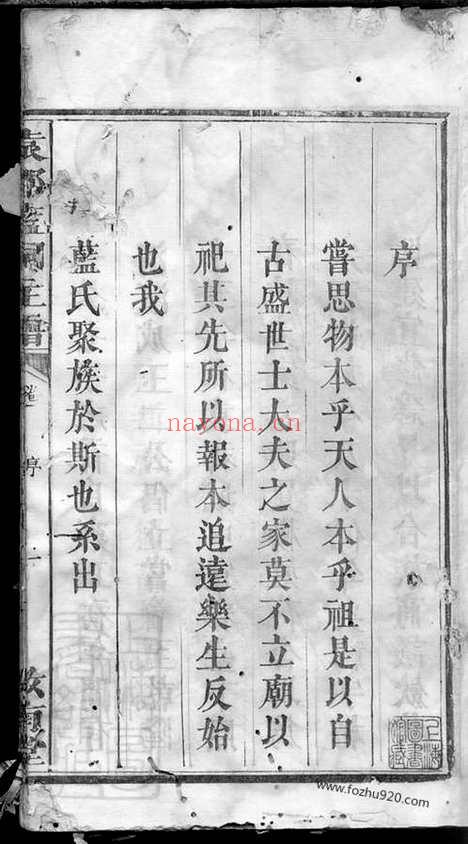 序
嘗思物本乎天人本乎祖是以自
古盛世士大夫之家莫不立廟以
祀其先所以報本追遠樂生反始
也我
藍氏聚族於斯也系出
序
一
nayona.cn
www.fozhu920.com